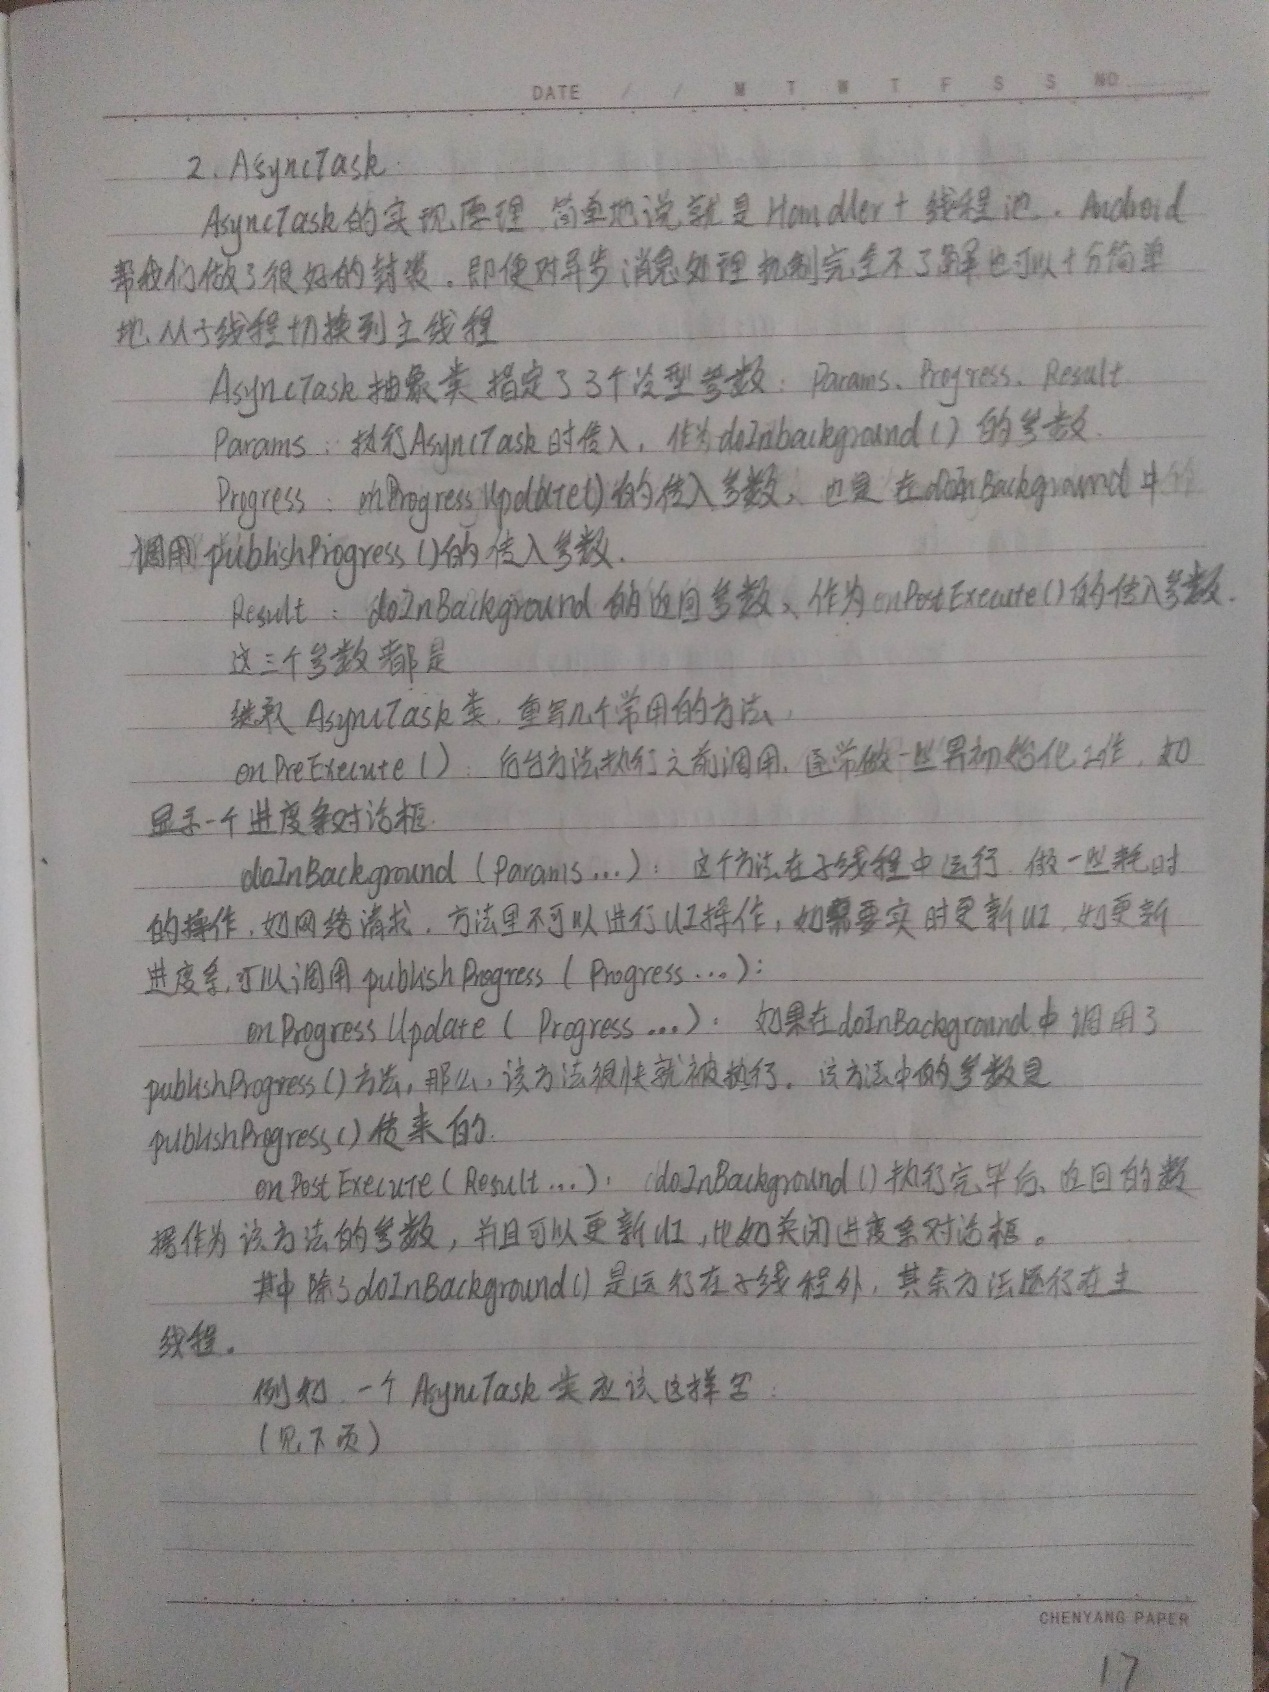 DATE / / M T W T F S S NO
2. AsyncTask.
AsyncTask的实现原理 简单地说就是Handler + 线程池. Android
帮我们做了很好的封装。即使对异步消息处理机制完全不了解也可以十分简单
地从子线程切换到主线程
AsyncTask抽象类指定了3个泛型参数: Params、Progress、Result
Params: 执行AsyncTask时传入, 作为doInbackground()的参数.
Progress: onProgressUpdate()的传入参数, 也是在doInBackground中
调用publishProgress()的传入参数.
Result: doInBackground的返回参数, 作为onPostExecute()的传入参数.
这三个参数都是
继承 AsyncTask类, 重写几个常用的方法,
onPreExecute(): 后台方法执行之前调用, 通常做一些界初始化工作, 如
显示一个进度条对话框.
doInBackground (Params...): 这个方法在子线程中运行, 做一些耗时
的操作, 如网络请求. 方法里不可以进行UI操作, 如需要实时更新UI, 如更新
进度条, 可以调用publishProgress (Progress...):
onProgressUpdate (Progress...): 如果在doInBackground中调用了
publishProgress()方法, 那么, 该方法很快就被执行。该方法中的参数是
publishProgress()传来的.
onPostExecute(Result...): doInBackground()执行完毕后, 返回的数
据作为该方法的参数, 并且可以更新UI, 比如关闭进度条对话框。
其中除了doInBackground()是运行在子线程外, 其余方法运行在主
线程。
例如 一个AsyncTask类应该这样写:
(见下页)
CHENYANG PAPER
17